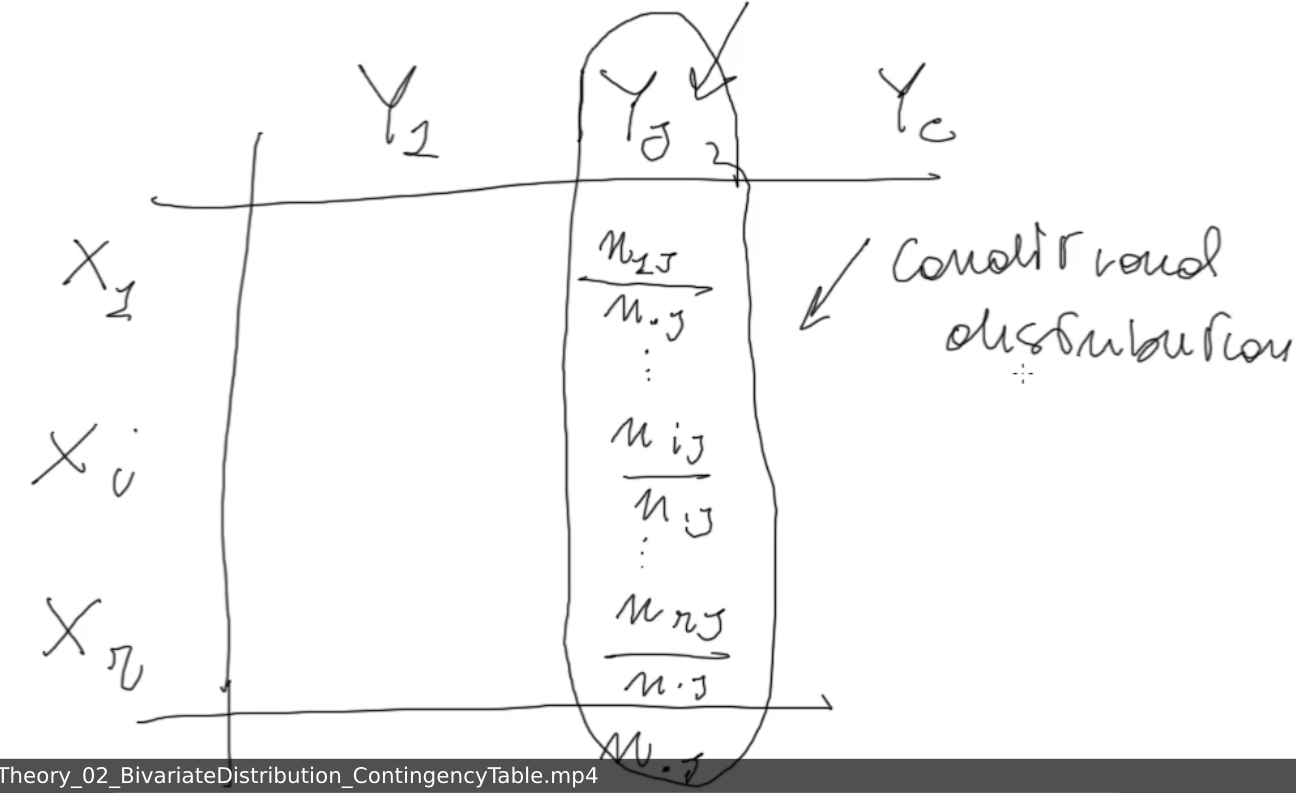 Y1 Yj Yc
X1 n1j
n.j
⋮
Xi nij
nij
⋮
Xr nrj
n.j
n.j
Conditional
distribution
Theory_02_BivariateDistribution_ContingencyTable.mp4